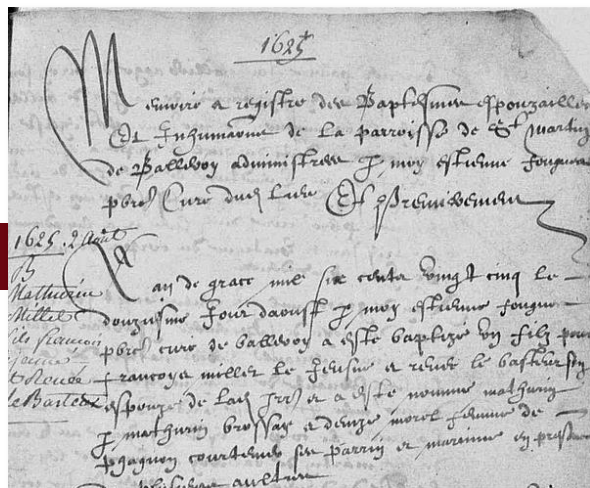 1625
Memoire et registre des Baptesmes espouzailles
Et Inhumations de la parroisse de St Martin
de Ballevoy administrées p moy estienne
pbre Curé dud lieu Et Premierement
1625. 2 Août
B
Mathurin
Millet
fils François
Jeune
et Renée
le Basteux
Lan de grace mil six cents vingt cinq le
douziesme Jour daoust p moy estienne
pbre curé de ballevoy a este baptizé un filz pour
francoys millet le Jeusne et renee le basteux son
espouze de lad et a este nomme mathurin
p mathurin brossay et denyze morel femme de
courteney ses parrin et marinne en
plusieurs aultres